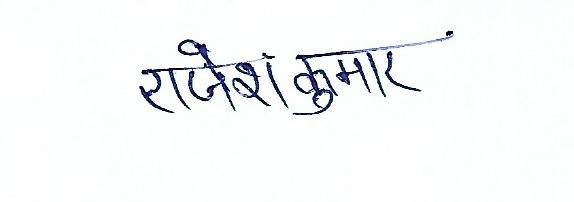 राजेश कुमार